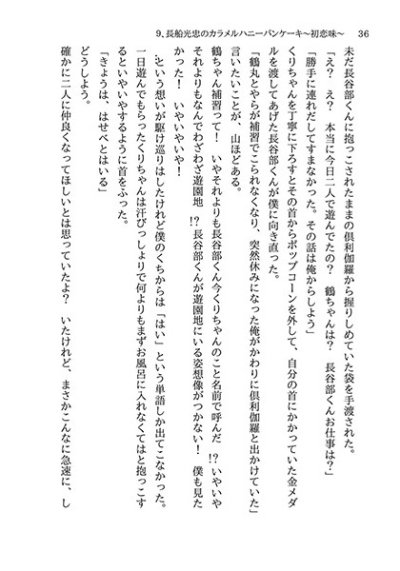 9、長船光忠のカラメルハニーパンケーキ～初恋味～
36
未だ長谷部くんに抱っこされたままの倶利伽羅から握りしめていた袋を手渡された。
「え？　え？　本当に今日二人で遊んでたの？　鶴ちゃんは？　長谷部くんお仕事は？」
「勝手に連れだしてすまなかった。その話は俺からしよう」
くりちゃんを丁寧に下ろすとその首からポップコーンを外して、自分の首にかかっていた金メダ
ルを渡してあげた長谷部くんが僕に向き直った。
「鶴丸とやらが補習でこられなくなり、突然休みになった俺がかわりに倶利伽羅と出かけていた」
言いたいことが、山ほどある。
鶴ちゃん補習って！　いやそれよりも長谷部くん今くりちゃんのこと名前で呼んだ　!?　いやいや
それよりもなんでわざわざ遊園地　!?　長谷部くんが遊園地にいる姿想像がつかない！　僕も見た
かった！　いやいやいや！
…という想いが駆け巡りはしたけれど僕のくちからは「はい」という単語しか出てこなかった。
一日遊んでもらったくりちゃんは汗びっしょりで何よりもまずお風呂に入れなくてはと抱っこす
るといやいやするように首をふった。
「きょうは、はせべとはいる」
どうしよう。
確かに二人に仲良くなってほしいとは思っていたよ？　いたけれど、まさかこんなに急速に、し